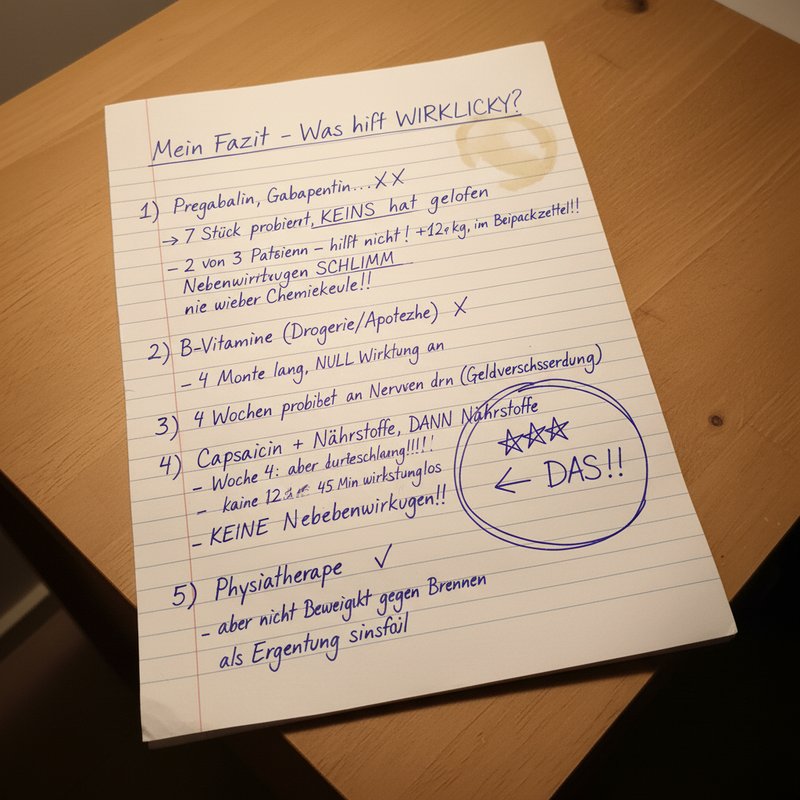 Mein Fazit – Was hift WIRKLICKY?
1) Pregabalin, Gabapentin...XX
→ 7 Stück probiert, KEINS hat gelofen
– 2 von 3 Patsienn – hilft nicht! +12 kg, im Beipackzettel!!
SCHLIMM
nie wieber Chemiekeule!!
2) B-Vitamine (Drogerie/Apotezhe) X
– 4 Monte lang, NULL Wirktung an
3) 4 Wochen probibet an Nervven drn (Geldverschsserdung)
4) Capsaicin + Nährstoffe, DANN Nährstoffe
– Woche 4: aber durteschlaung!!!!!
– kaine 12 45 Min wirkstunglos
– KEINE Nebebenwirkugen!!
☆☆☆
← DAS!!
5) Physiatherape ✓
– aber nicht Beweigıkt gegen Brennen
als Ergentung sinsfail